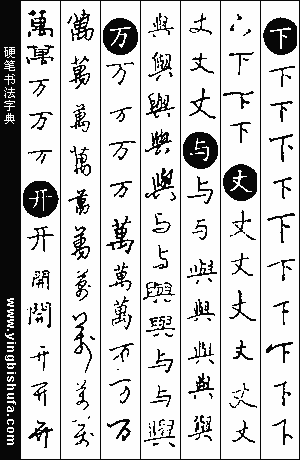 下下下下下下下下下下
下下下下丈丈丈丈丈丈丈
丈丈丈与与与與與與與與
與與與與與与与與與与与與
万万万万万萬萬萬万万万
萬萬萬萬萬萬萬萬萬萬
萬萬万万万开开開開开开开
硬笔书法字典
www.yingbishufa.com